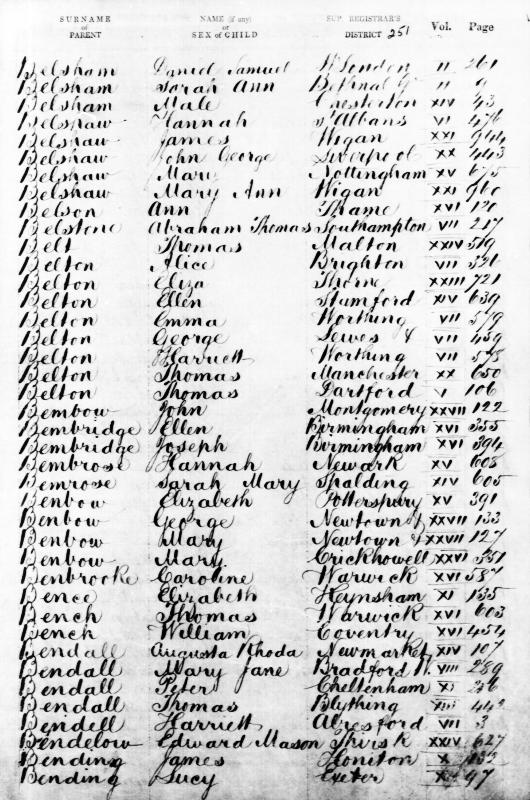 SURNAME OF PARENT NAME (if any) OR SEX of CHILD SUP. REGISTRAR'S DISTRICT 251 Vol. Page
Belsham Daniel Samuel W London II 261
Belsham Sarah Ann Bethnal G II 9
Belsham Male Chesterton XIV 43
Belshaw Hannah St Albans VI 476
Belshaw James Wigan XXI 944
Belshaw John George Liverpool XX 443
Belshaw Mary Nottingham XV 675
Belshaw Mary Ann Wigan XXI 960
Belson Ann Thame XVI 120
Belstone Abraham Thomas Southampton VII 217
Belt Thomas Malton XXIV 519
Belton Alice Brighton VII 326
Belton Eliza Thorne XXIII 721
Belton Ellen Stamford XIV 639
Belton Emma Worthing VII 579
Belton George Lewes & VII 459
Belton Harriett Worthing VII 578
Belton Thomas Manchester XX 650
Belton Thomas Dartford V 106
Bembow John Montgomery XXVII 122
Bembridge Ellen Birmingham XVI 355
Bembridge Joseph Birmingham XVI 394
Bembrose Hannah Newark XV 605
Bemrose Sarah Mary Spalding XIV 605
Benbow Elizabeth Potterspury XV 391
Benbow George Newtown & XXVII 133
Benbow Mary Newtown & XXVII 127
Benbow Mary Crickhowell XXVI 551
Benbrooke Caroline Warwick XVI 587
Bence Elizabeth Keynsham XI 135
Bench Thomas Warwick XVI 603
Bench William Coventry XVI 454
Bendall Augusta Rhoda Newmarket XIV 107
Bendall Mary Jane Bradford W. VIII 289
Bendall Peter Cheltenham XI 256
Bendall Thomas Blything XIII 442
Bendell Harriett Alresford VII 3
Bendelow Edward Mason Thirsk XXIV 627
Bending James Honiton X 132
Bending Lucy Exeter X 97